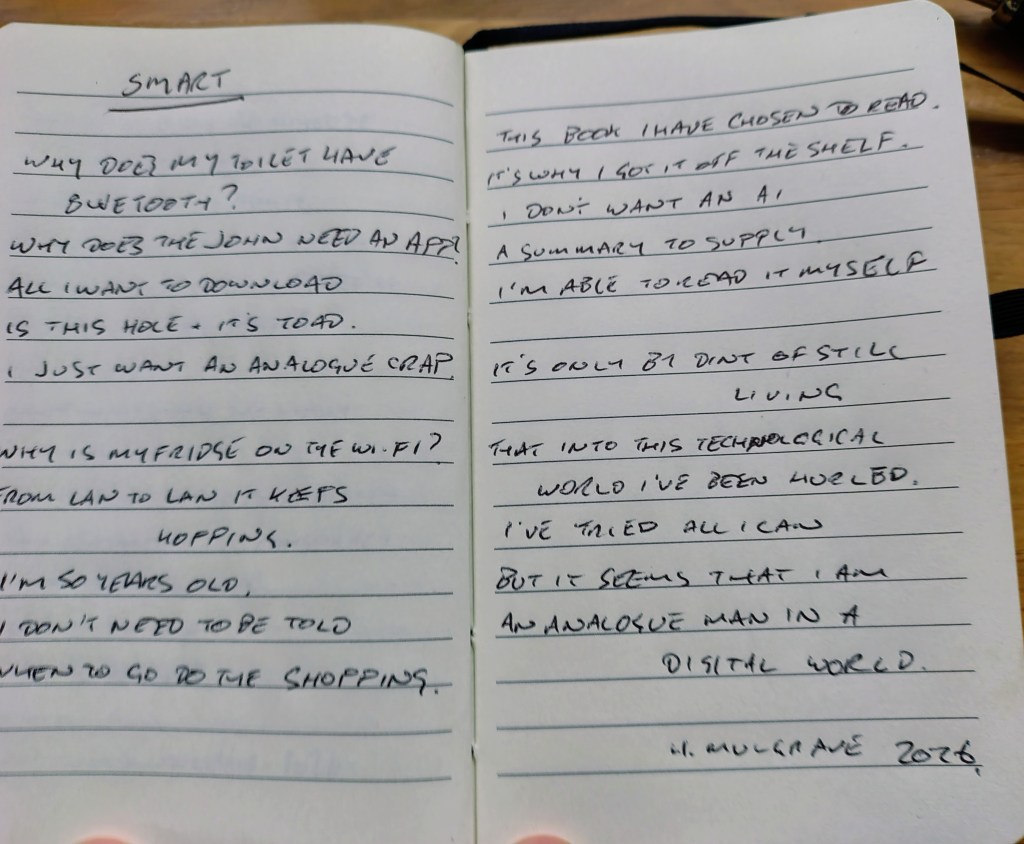 SMART
WHY DOES MY TOILET HAVE
BLUETOOTH?
WHY DOES THE JOHN NEED AN APP?
ALL I WANT TO DOWNLOAD
IS THIS HOLE + IT'S TOAD.
I JUST WANT AN ANALOGUE CRAP.
WHY IS MY FRIDGE ON THE WI-FI?
FROM LAN TO LAN IT KEEPS
HOPPING.
I'M 50 YEARS OLD,
I DON'T NEED TO BE TOLD
WHEN TO GO DO THE SHOPPING.
THIS BOOK I HAVE CHOSEN TO READ.
IT'S WHY I GOT IT OFF THE SHELF.
I DON'T WANT AN AI
A SUMMARY TO SUPPLY.
I'M ABLE TO READ IT MYSELF
IT'S ONLY BY DINT OF STILL
LIVING
THAT INTO THIS TECHNOLOGICAL
WORLD I'VE BEEN HURLED.
I'VE TRIED ALL I CAN
BUT IT SEEMS THAT I AM
AN ANALOGUE MAN IN A
DIGITAL WORLD.
H. MULGRAVE 2026.